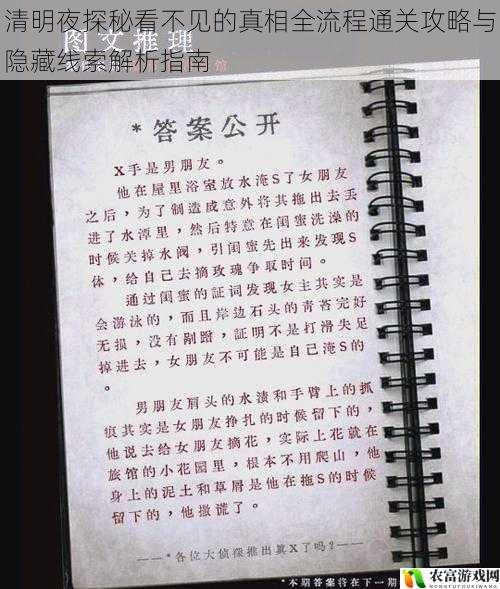 清明夜探秘看不见的真相全流程通关攻略与
隐藏线索解析指南
图文推理
馆
*答案公开
X手是男朋友。
他在屋里浴室放水淹S了女朋友
之后，为了制造成意外将其拖出去丢
进了水潭里，然后特意在闺蜜洗澡的
时候关掉水阀，引闺蜜先出来发现S
体，给自己去摘玫瑰争取时间。
通过闺蜜的証词发现女主其实是
会游泳的，而且岸边石头的青苔完好
无损，没有剐蹭，証明不是打滑失足
掉进去，女朋友不可能是自己淹S的
。
男朋友肩头的水渍和手臂上的抓
痕其实是女朋友挣扎的时候留下的，
他说去给女朋友摘花，实际上花就在
旅馆的小花园里，根本不用爬山，他
身上的泥土和草屑是他在拖S的时候
留下的，他撒谎了。
——"各位大侦探推出真X了吗？"——
*本期答案将在下一期
农富游戏网